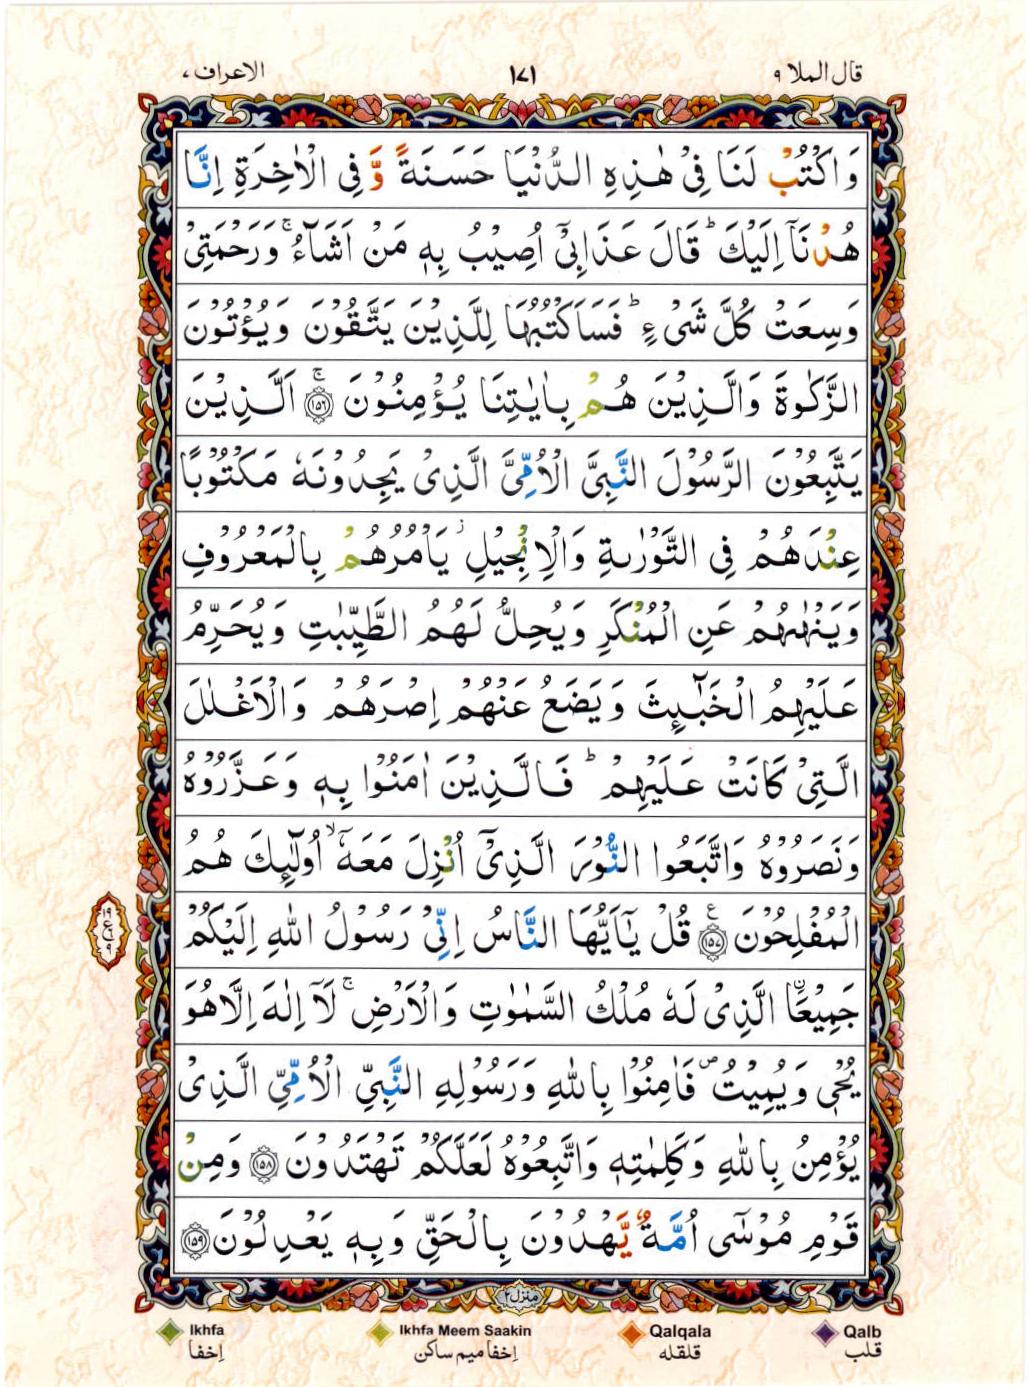 قال الملا ٩
١٧١
الاعراف ٧
وَاكْتُبْ لَنَا فِیْ هٰذِهِ الدُّنْیَا حَسَنَةً وَّ فِی الْاٰخِرَةِ اِنَّا
هُدْنَاۤ اِلَیْكَ ؕ قَالَ عَذَابِیْۤ اُصِیْبُ بِهٖ مَنْ اَشَآءُ ۚ وَرَحْمَتِیْ
وَسِعَتْ كُلَّ شَیْءٍ ؕ فَسَاَكْتُبُهَا لِلَّذِیْنَ یَتَّقُوْنَ وَیُؤْتُوْنَ
الزَّكٰوةَ وَالَّذِیْنَ هُمْ بِاٰیٰتِنَا یُؤْمِنُوْنَ ۚ ﴿١٥٦﴾ اَلَّذِیْنَ
یَتَّبِعُوْنَ الرَّسُوْلَ النَّبِیَّ الْاُمِّیَّ الَّذِیْ یَجِدُوْنَهٗ مَكْتُوْبًا
عِنْدَهُمْ فِی التَّوْرٰىةِ وَالْاِنْجِیْلِ ؗ یَاْمُرُهُمْ بِالْمَعْرُوْفِ
وَیَنْهٰىهُمْ عَنِ الْمُنْكَرِ وَیُحِلُّ لَهُمُ الطَّیِّبٰتِ وَیُحَرِّمُ
عَلَیْهِمُ الْخَبٰٓىِٕثَ وَیَضَعُ عَنْهُمْ اِصْرَهُمْ وَالْاَغْلٰلَ
الَّتِیْ كَانَتْ عَلَیْهِمْ ؕ فَالَّذِیْنَ اٰمَنُوْا بِهٖ وَعَزَّرُوْهُ
وَنَصَرُوْهُ وَاتَّبَعُوا النُّوْرَ الَّذِیْۤ اُنْزِلَ مَعَهٗۤ ۙ اُولٰٓىِٕكَ هُمُ
الْمُفْلِحُوْنَ ﴿١٥٧﴾ قُلْ یٰۤاَیُّهَا النَّاسُ اِنِّیْ رَسُوْلُ اللّٰهِ اِلَیْكُمْ
جَمِیْعَا ۨ الَّذِیْ لَهٗ مُلْكُ السَّمٰوٰتِ وَالْاَرْضِ ۚ لَاۤ اِلٰهَ اِلَّا هُوَ
یُحْیٖ وَیُمِیْتُ ۪ فَاٰمِنُوْا بِاللّٰهِ وَرَسُوْلِهِ النَّبِیِّ الْاُمِّیِّ الَّذِیْ
یُؤْمِنُ بِاللّٰهِ وَكَلِمٰتِهٖ وَاتَّبِعُوْهُ لَعَلَّكُمْ تَهْتَدُوْنَ ﴿١٥٨﴾ وَمِنْ
قَوْمِ مُوْسٰۤی اُمَّةٌ یَّهْدُوْنَ بِالْحَقِّ وَبِهٖ یَعْدِلُوْنَ ﴿١٥٩﴾
منزل ٢
Ikhfa
اِخفا
Ikhfa Meem Saakin
اِخفا میم ساکن
Qalqala
قلقله
Qalb
قلب